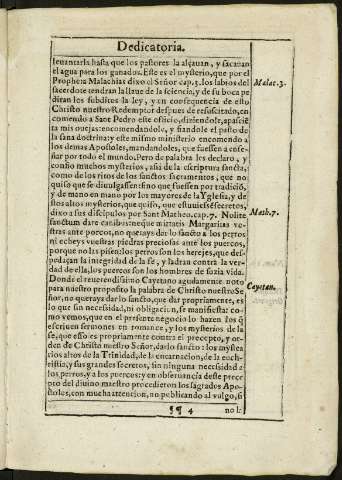 Dedicatoria.
leuantarla hasta que los pastores la alçauan, y sacauan
el agua para los ganados. Este es el mysterio, que por el
Propheta Malachias dixo el Señor cap. 3. los labios del
Malac. 3.
sacerdote tendran la llaue de la sciencia, y de su boca pe
diran los subditos la ley, y en consequencia de esto
Christo nuestro Redemptor despues de resuscitado, en
comendo a Sant Pedro este officio, diziendole, apascie
ta mis ouejas: encomendandole, y fiandole el pasto de
la sana doctrina: y este mismo ministerio encomendo a
los demas Apostoles, mandandoles, que fuessen a ense-
ñar por todo el mundo. Pero de palabra les declaro, y
confio muchos mysterios, assi de la escriptura sancta,
como de los ritos de los sanctos sacramentos, que no
quiso que se diuulgassen: sino que fuessen por tradició,
y de mano en mano por los mayores de la Yglesia, y de
stos altos mysterios, que quiso, que estuuiessé secretos,
dixo a sus discipulos por Sant Matheo. cap. 7. Nolite
Math. 7.
sanctum dare canibus: neque mittatis Margaritas ve-
stras ante porcos, no querays dar lo sancto a los perros
ni echeys vuestras piedras preciosas ante los puercos,
porque no las pisen: los perros son los herejes, que des-
pedaçan la integridad de la fe, y ladran contra la ver-
dad de ella, los puercos son los hombres de suzia vida.
Donde el reuerendissimo Cayetano agudamente noto
Cayetan.
para nuestro proposito la palabra de Christo nuestro Se
ñor, no querays dar lo sancto, que dar propriamente, es
lo que sin necessidad, ni obligacion, se manifiesta: co
mo vemos, que en el presente negocio lo hazen los q̃
escriuen sermones en romance, y los mysterios de la
fe, que esso es propriamente contra el precepto, y or-
den de Christo nuestro Señor, dar lo sancto: los myste
rios altos de la Trinidad, de la encarnacion, de la euch-
ristia, y sus grandes secretos, sin ninguna necessidad a
los perros, y a los puercos: y en obseruancia deste prece
pto del diuino maestro procedieron los sagrados Apo-
stoles, con mucha attention, no publicando al vulgo, si
¶¶ 4
no l: